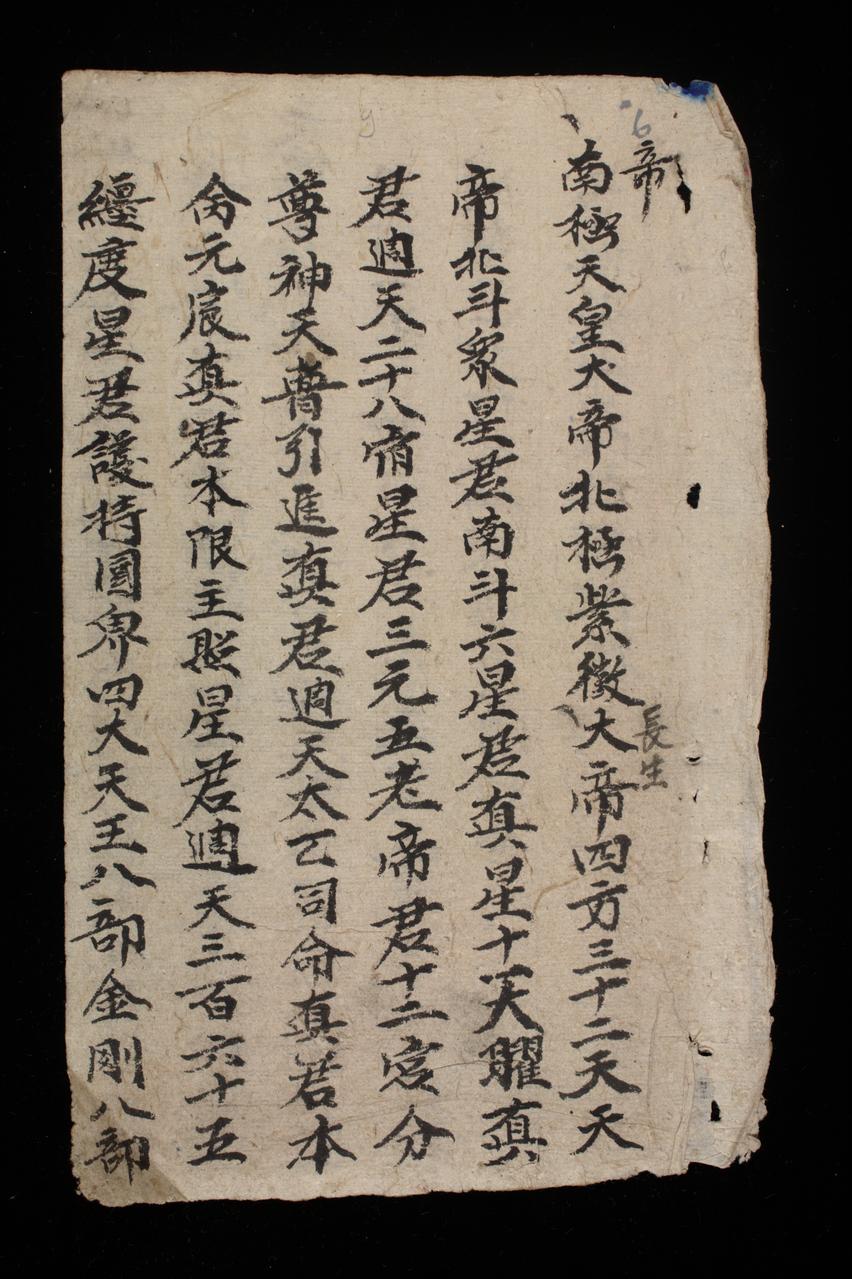 帝
南極天皇大帝北極紫微大帝四方三十二天天
長生
帝北斗眾星君南斗六星君真星十一大曜真
君週天二十八宿星君三元五老帝君十二宮分
尊神天曹引進真君週天太乙司命真君本
命元辰真君本限主照星君週天三百六十五
纏度星君護持國界四大天王八部金剛八部